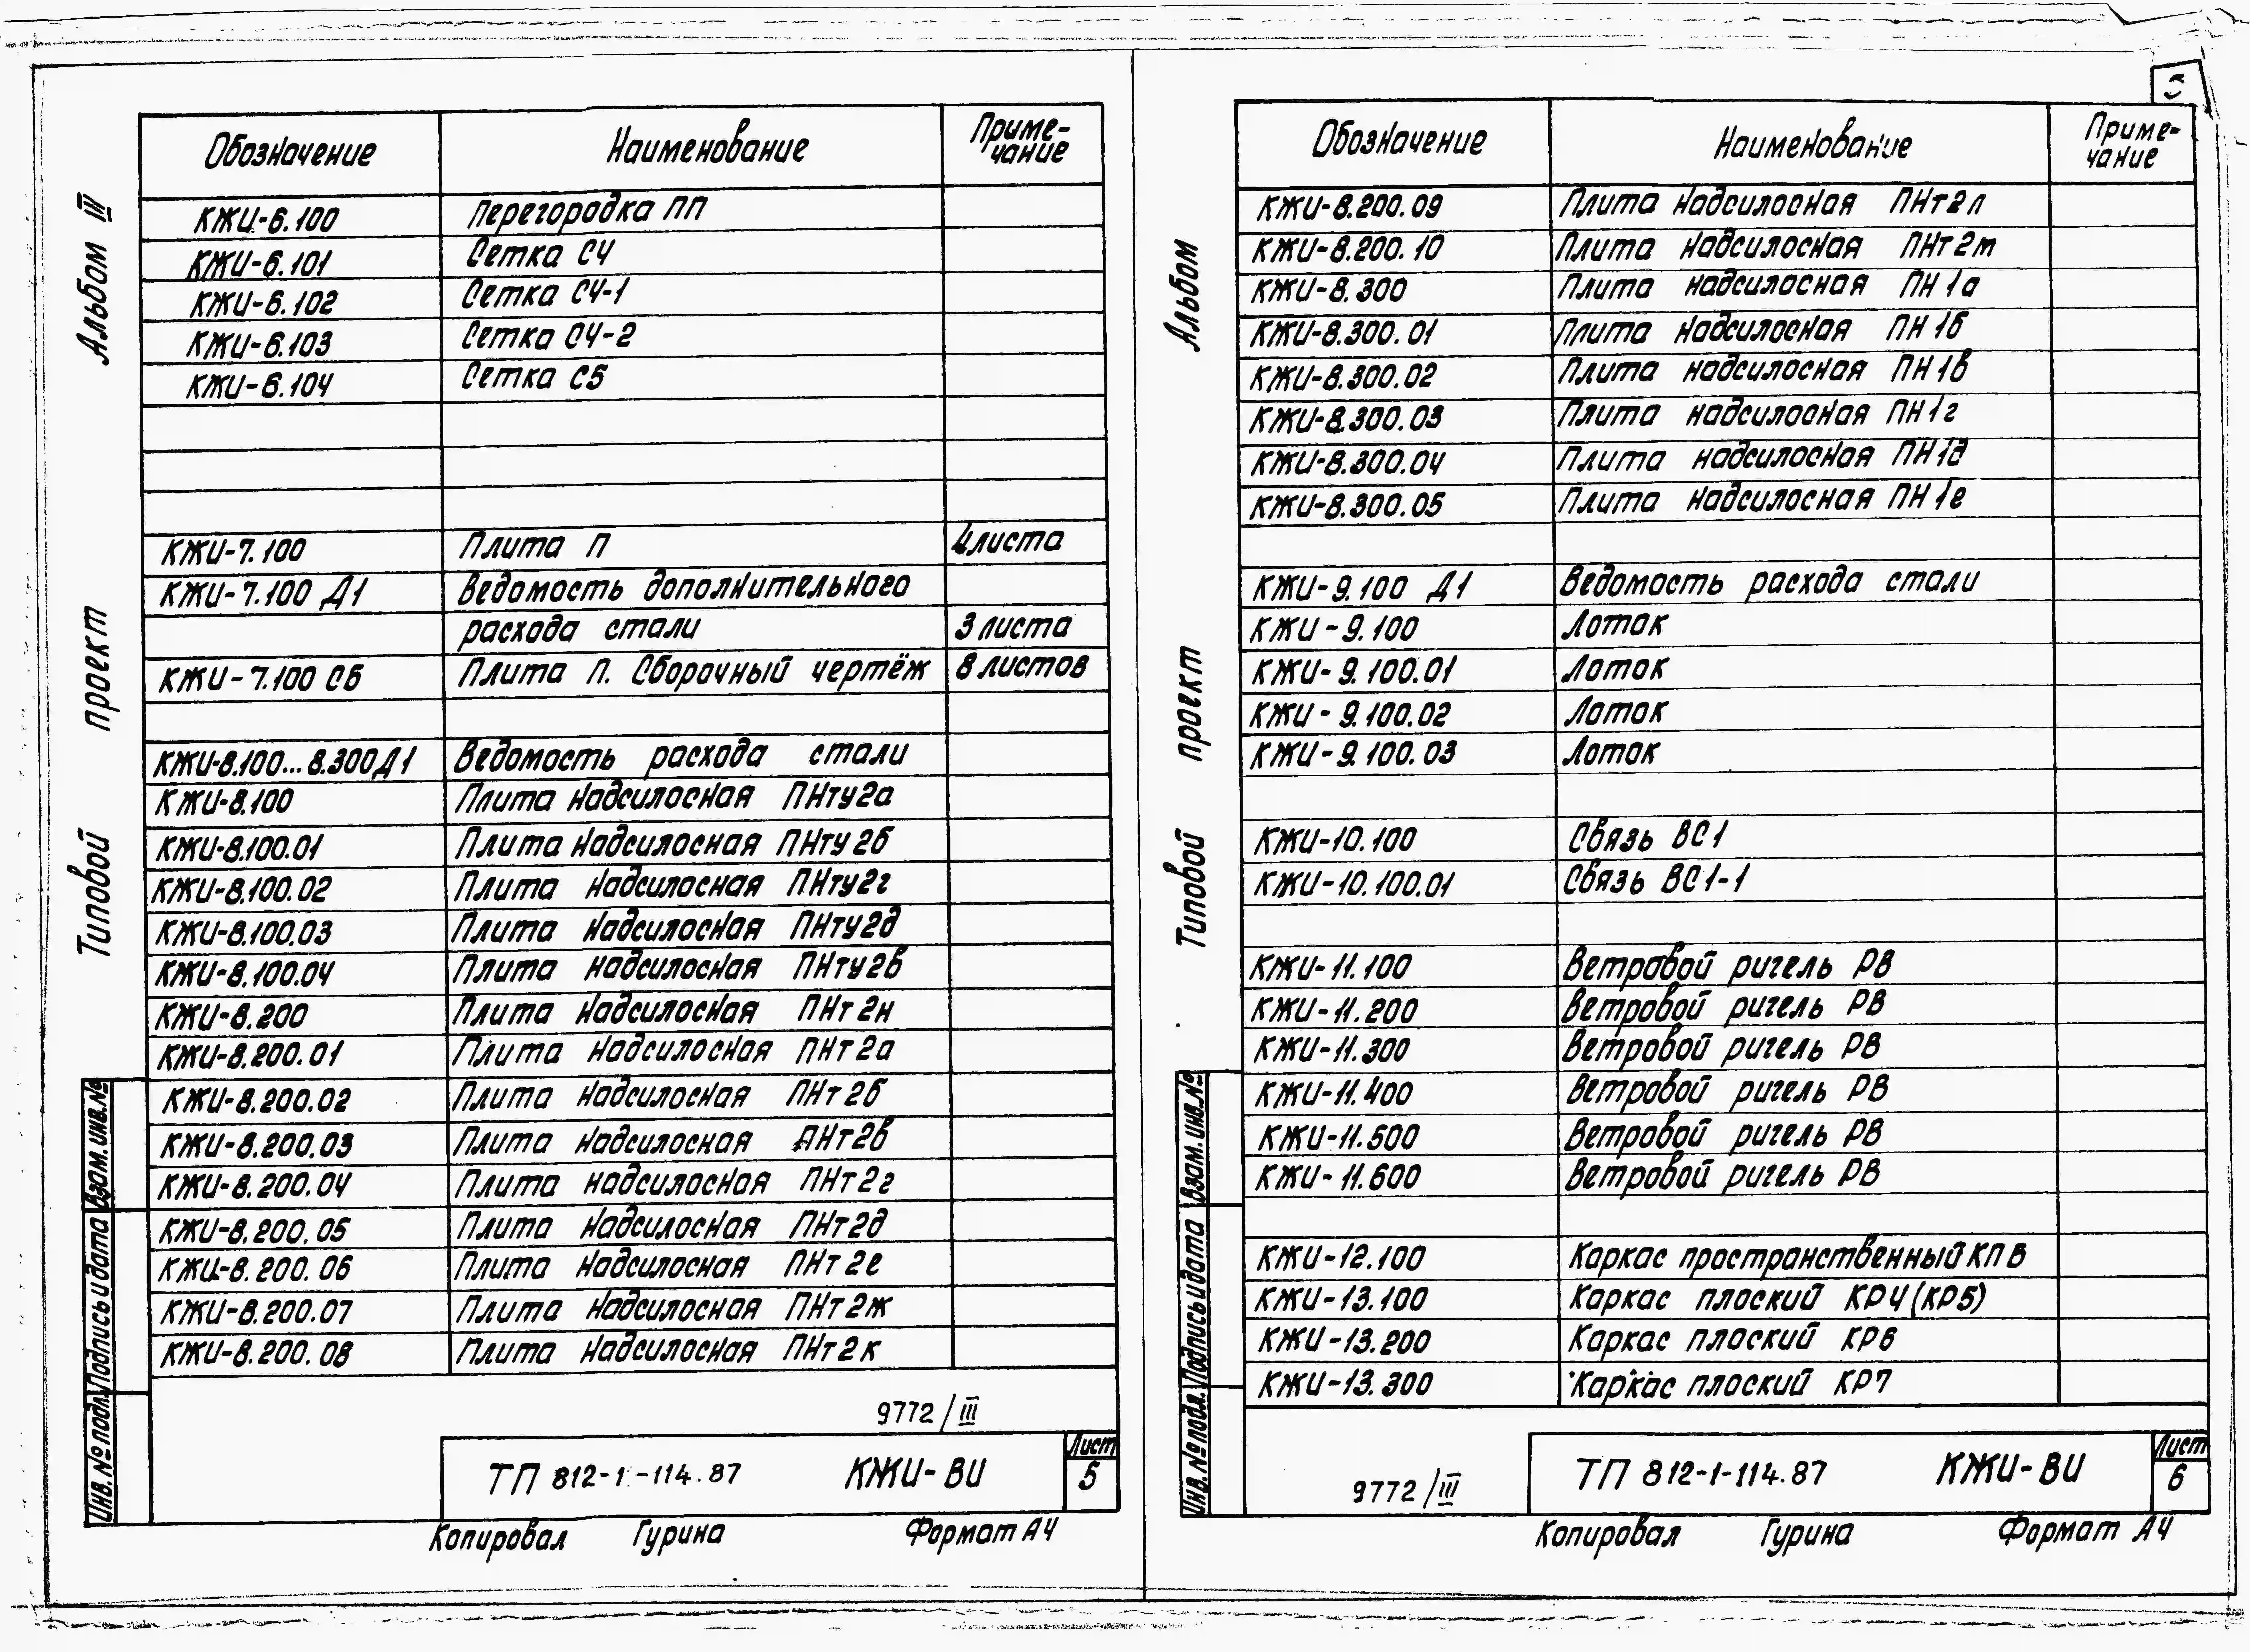 Альбом III
Типовой проект
Обозначение Наименование Приме-
чание
КЖИ-6.100 Перегородка ПП
КЖИ-6.101 Сетка С4
КЖИ-6.102 Сетка С4-1
КЖИ-6.103 Сетка С4-2
КЖИ-6.104 Сетка С5
КЖИ-7.100 Плита П 4 листа
КЖИ-7.100 Д1 Ведомость дополнительного
расхода стали 3 листа
КЖИ-7.100 СБ Плита П. Сборочный чертёж 8 листов
КЖИ-8.100...8.300Д1 Ведомость расхода стали
КЖИ-8.100 Плита надсилосная ПНту2а
КЖИ-8.100.01 Плита надсилосная ПНту2б
КЖИ-8.100.02 Плита надсилосная ПНту2г
КЖИ-8.100.03 Плита надсилосная ПНту2д
КЖИ-8.100.04 Плита надсилосная ПНту2в
КЖИ-8.200 Плита надсилосная ПНт2н
КЖИ-8.200.01 Плита надсилосная ПНт2а
КЖИ-8.200.02 Плита надсилосная ПНт2б
КЖИ-8.200.03 Плита надсилосная ПНт2в
КЖИ-8.200.04 Плита надсилосная ПНт2г
КЖИ-8.200.05 Плита надсилосная ПНт2д
КЖИ-8.200.06 Плита надсилосная ПНт2е
КЖИ-8.200.07 Плита надсилосная ПНт2ж
КЖИ-8.200.08 Плита надсилосная ПНт2к
Взам. инв. №
Подпись и дата
Инв. № подл.
9772/III
ТП 812-1-114.87 КЖИ-ВИ
Лист
5
Копировал Гурина Формат А4
Альбом
Типовой проект
Обозначение Наименование Приме-
чание
КЖИ-8.200.09 Плита надсилосная ПНт2л
КЖИ-8.200.10 Плита надсилосная ПНт2м
КЖИ-8.300 Плита надсилосная ПН1а
КЖИ-8.300.01 Плита надсилосная ПН1б
КЖИ-8.300.02 Плита надсилосная ПН1в
КЖИ-8.300.03 Плита надсилосная ПН1г
КЖИ-8.300.04 Плита надсилосная ПН1д
КЖИ-8.300.05 Плита надсилосная ПН1е
КЖИ-9.100 Д1 Ведомость расхода стали
КЖИ-9.100 Лоток
КЖИ-9.100.01 Лоток
КЖИ-9.100.02 Лоток
КЖИ-9.100.03 Лоток
КЖИ-10.100 Связь ВС1
КЖИ-10.100.01 Связь ВС1-1
КЖИ-11.100 Ветровой ригель РВ
КЖИ-11.200 Ветровой ригель РВ
КЖИ-11.300 Ветровой ригель РВ
КЖИ-11.400 Ветровой ригель РВ
КЖИ-11.500 Ветровой ригель РВ
КЖИ-11.600 Ветровой ригель РВ
КЖИ-12.100 Каркас пространственный КП8
КЖИ-13.100 Каркас плоский КР4(КР5)
КЖИ-13.200 Каркас плоский КР6
КЖИ-13.300 Каркас плоский КР7
Взам. инв. №
Подпись и дата
Инв. № подл.
9772/III
ТП 812-1-114.87 КЖИ-ВИ
Лист
6
Копировал Гурина Формат А4